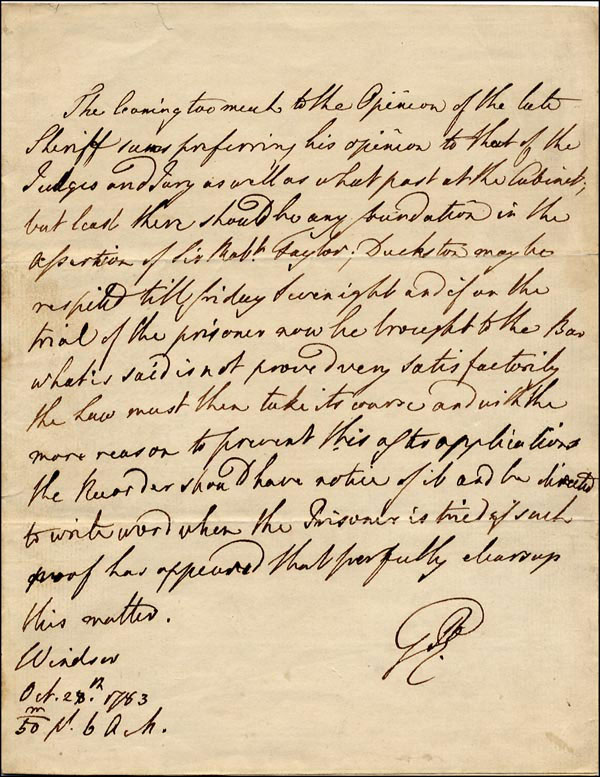 The leaning too much to the Opinion of the late
Sheriff seems preferring his opinion to that of the
Judges and Jury as well as what past at the Cabinet;
but least there should be any foundation in the
assertion of Sir Robt. Taylor; may be
respited till friday Sevenight and if on the
trial of the prisoner now be brought to the Bar
what is said is not proved very satisfactorily
the Law must then take its course and with the
more reason to prevent this applications
the Recorder should have notice of it and be directed
to write word when the Prisoner is tried if such
proof has appeared that perfectly clears up
this matter.
GR
Windsor
Oct. 28.th 1783
m
50 pt. 6 A.M.